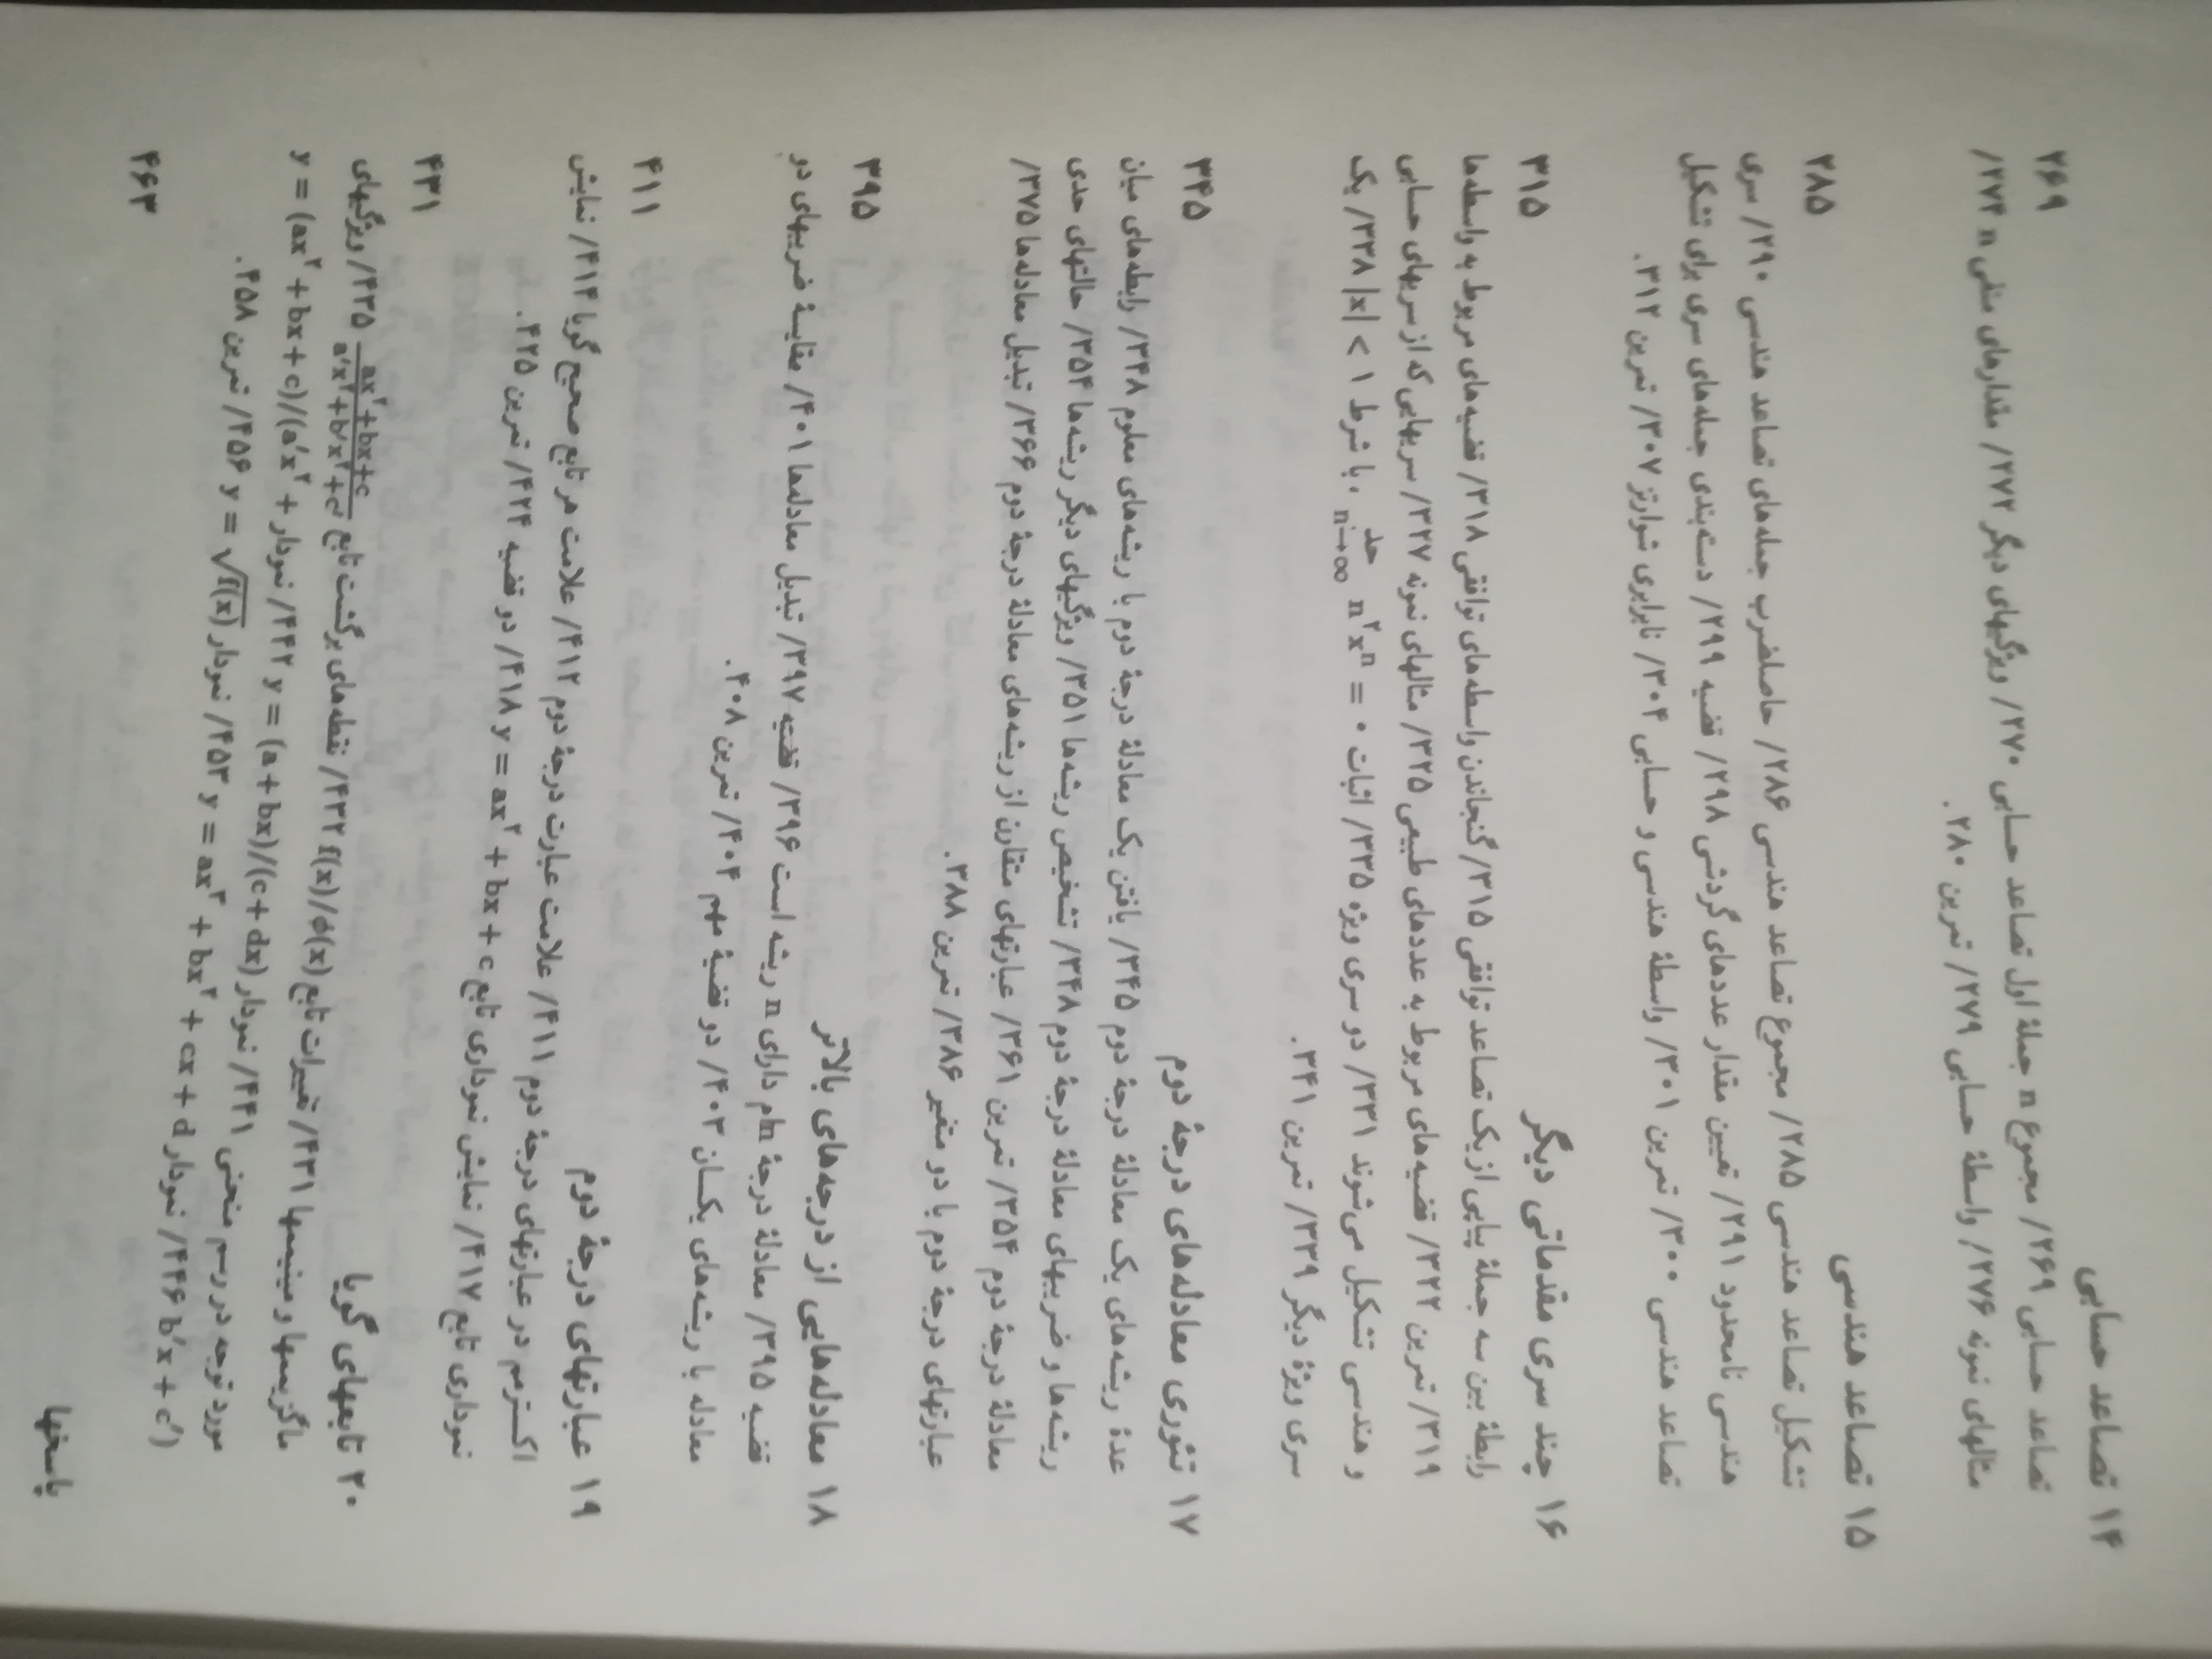 ۱۴ تصاعد حسابی ۲۶۹
تصاعد حسابی ۲۶۹/ مجموع n جملهٔ اول تصاعد حسابی ۲۷۰/ ویژگیهای دیگر ۲۷۲/ مقدارهای منفی n ۲۷۴/
مثالهای نمونه ۲۷۶/ واسطهٔ حسابی ۲۷۹/ تمرین ۲۸۰.
۱۵ تصاعد هندسی ۲۸۵
تشکیل تصاعد هندسی ۲۸۵/ مجموع تصاعد هندسی ۲۸۶/ حاصلضرب جمله‌های تصاعد هندسی ۲۹۰/ سری
هندسی نامحدود ۲۹۱/ تعیین مقدار عددهای گردشی ۲۹۸/ قضیه ۲۹۹/ دسته‌بندی جمله‌های سری برای تشکیل
تصاعد هندسی ۳۰۰/ تمرین ۳۰۱/ واسطهٔ هندسی و حسابی ۳۰۴/ نابرابری شوارتز ۳۰۷/ تمرین ۳۱۲.
۱۶ چند سری مقدماتی دیگر ۳۱۵
رابطهٔ بین سه جملهٔ پیاپی از یک تصاعد توافقی ۳۱۵/ گنجاندن واسطه‌های توافقی ۳۱۸/ قضیه‌های مربوط به واسطه‌ها
۳۱۹/ تمرین ۳۲۲/ قضیه‌های مربوط به عددهای طبیعی ۳۲۵/ مثالهای نمونه ۳۲۷/ سریهایی که از سریهای حسابی
و هندسی تشکیل می‌شوند ۳۳۱/ دو سری ویژه ۳۳۵/ اثبات حد n→∞ n²xⁿ = ۰ ، با شرط |x| < ۱ ۳۳۸/ یک
سری ویژهٔ دیگر ۳۳۹/ تمرین ۳۴۱.
۱۷ تئوری معادله‌های درجهٔ دوم ۳۴۵
عدهٔ ریشه‌های یک معادلهٔ درجهٔ دوم ۳۴۵/ یافتن یک معادلهٔ درجهٔ دوم با ریشه‌های معلوم ۳۴۸/ رابطه‌های میان
ریشه‌ها و ضریبهای معادلهٔ درجهٔ دوم ۳۴۸/ تشخیص ریشه‌ها ۳۵۱/ ویژگیهای دیگر ریشه‌ها ۳۵۴/ حالتهای حدی
معادلهٔ درجهٔ دوم ۳۵۴/ تمرین ۳۶۱/ عبارتهای متقارن از ریشه‌های معادلهٔ درجهٔ دوم ۳۶۶/ تبدیل معادله‌ها ۳۷۵/
عبارتهای درجهٔ دوم با دو متغیر ۳۸۶/ تمرین ۳۸۸.
۱۸ معادله‌هایی از درجه‌های بالاتر ۳۹۵
قضیه ۳۹۵/ معادلهٔ درجهٔ nام دارای n ریشه است ۳۹۶/ قضیه ۳۹۷/ تبدیل معادله‌ها ۴۰۱/ مقایسهٔ ضریبهای دو
معادله با ریشه‌های یکسان ۴۰۳/ دو قضیهٔ مهم ۴۰۴/ تمرین ۴۰۸.
۱۹ عبارتهای درجهٔ دوم ۴۱۱
علامت عبارتهای درجهٔ دوم ۴۱۱/ علامت عبارت درجهٔ دوم ۴۱۲/ علامت هر تابع صحیح گویا ۴۱۴/ نمایش
اکسترمم در عبارتهای درجهٔ دوم
نموداری تابع ۴۱۷/ نمایش نموداری تابع y = ax² + bx + c ۴۱۸/ دو قضیه ۴۲۴/ تمرین ۴۲۵.
۲۰ تابعهای گویا ۴۳۱
ماگزیممها و مینیممها ۴۳۱/ تغییرات تابع f(x)/φ(x) ۴۳۲/ نقطه‌های برگشت تابع (ax²+bx+c)/(a′x²+b′x²+c′) ۴۳۵/ ویژگیهای
مورد توجه در رسم منحنی ۴۴۱/ نمودار y = (a + bx)/(c + dx) ۴۴۲/ نمودار y = (ax² + bx + c)/(a′x² +
b′x + c′) ۴۴۶/ نمودار y = ax³ + bx² + cx + d ۴۵۳/ نمودار y = √f(x) ۴۵۶/ تمرین ۴۵۸.
پاسخها ۴۶۳